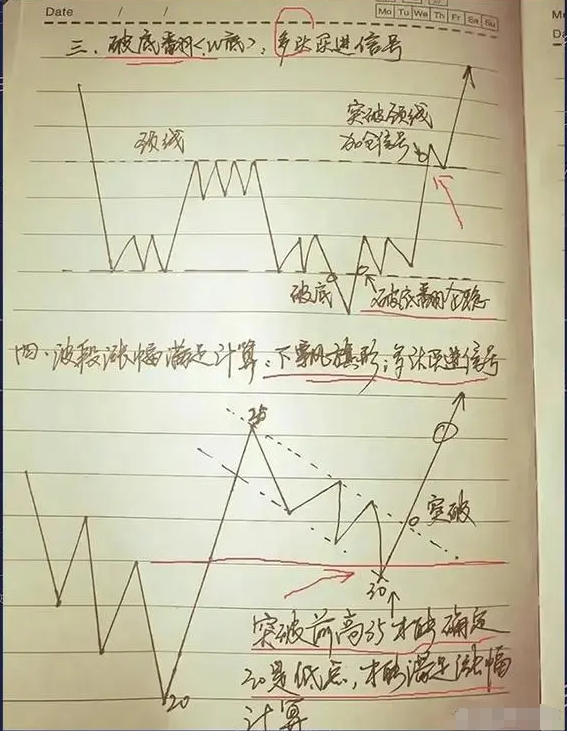 Date / /
Mo Tu We Th Fr Sa Su
三、破底翻<W底>：多次买进信号
颈线
突破颈线
加仓信号
破底
破底翻
四、波段涨幅满足计算：下飘旗形；多次买进信号
25
突破
20
突破前高25才能确定
20是低点，才能满足涨幅
20
计算